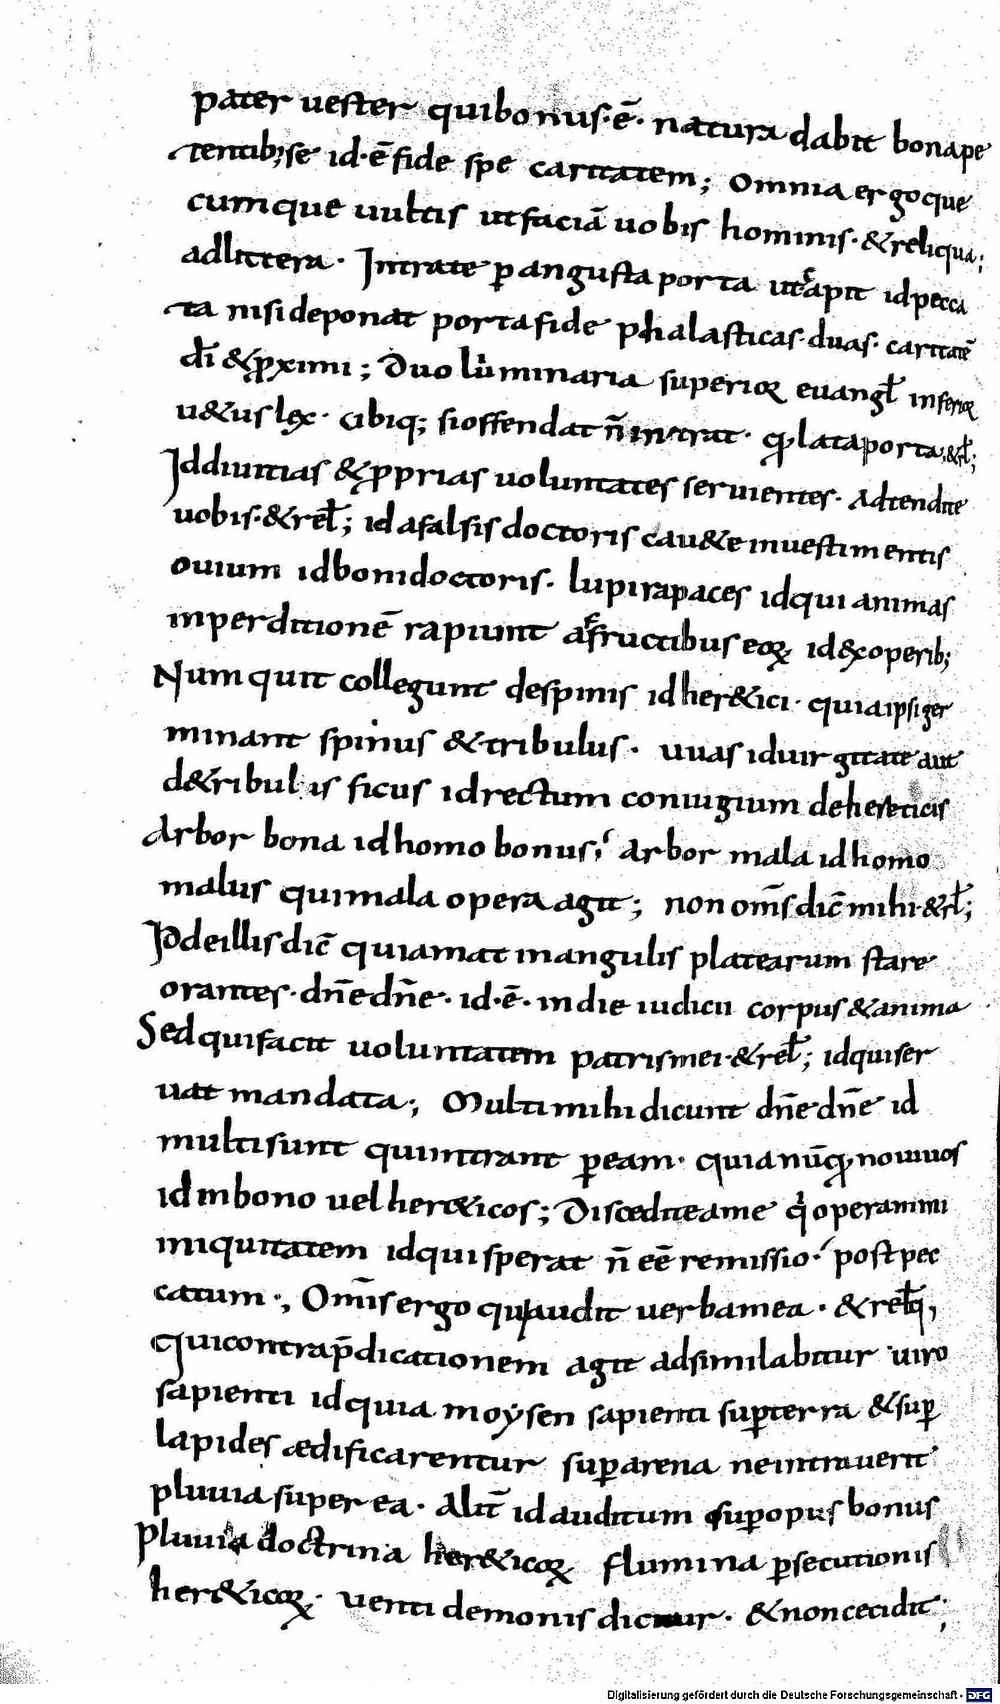 pater uester quibonus·ē· natura dabit bonape
tentib;se id·ē fide spe caritatem; Omnia ergoque
cumque uultis utfaciā uobis hominis·&reliqua;
adlittera· Intrate ꝑangusta porta id pecca
ta nisideponat portafide phalasticas·duas· caritatē
dī &ꝓximi; Duo luminaria superioꝝ euangl̄ inferioꝝ
u&us lex· cibiq; sioffendat n̄ intrat· lataporta·&rl̄;
Iddiuitias &ꝓprias uoluntates seruientes· Adtendite
uobis·&rel̄; id afalsis doctoris cau&e inuestimentis
ouium idbonidoctoris· lupirapaces idqui animas
inperditionē rapiunt afructibus eoꝝ id&xoperib;
Numquit collegunt despinis idher&ici· quiaipsi ger
minant spinus &tribulus· uuas iduirgitate aut
d&ribulis ficus idrectum coniugium dehereticis
Arbor bona idhomo bonus; arbor mala idhomo
malus quimala opera agit; non om̄s dic̄ mihi·&rl̄;
Iddeillisdic̄ quiamat inangulis platearum stare
orantes·dn̄edn̄e· id·ē· indie iudicii corpus &anima
Sedquifacit uoluntatem patrismei·&rel̄; idquiser
uat mandata; Multimihidicunt dn̄edn̄e id
multisunt quiintrant ꝑeam· quianūq nouiuos
idinbono uelher&icos; Discediteame operamini
iniquitatem idquisperat n̄ eē remissio· postpec
catum·, Om̄isergo quiaudit uerbamea· &relq̄,
Quicontrap̄dicationem agit adsimilabitur uiro
sapienti idquia moẏsen sapienti suꝑterra &suꝑ
lapides ædificarentur suꝑarena neintrauerit
pluuia super ea· Alit̄ idauditum suꝑopus bonus
Pluuia doctrina her&icoꝝ flumina ꝑsecutionis
her&icoꝝ· uenti demonis dicitur· &noncecidit;
Digitalisierung gefördert durch die Deutsche Forschungsgemeinschaft - DFG